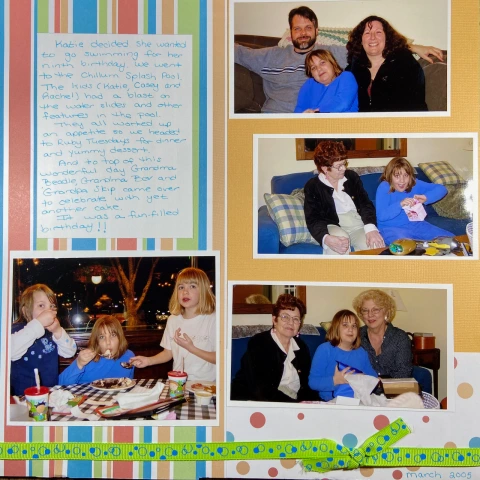 Katie decided she wanted
to go swimming for her
ninth birthday. We went
to the Chillum Splash Pool.
The Kids (Katie, Casey and
Rachel) had a blast on
the water slides and other
features in the pool.
They all worked up
an appetite so we headed
to Ruby Tuesdays for dinner
and yummy dessert.
And to top off this
wonderful day Grandma
Beadie, Grandma Bear and
Grandpa Skip came over
to celebrate with yet
another cake.
It was a fun-filled
birthday!!
march 2005